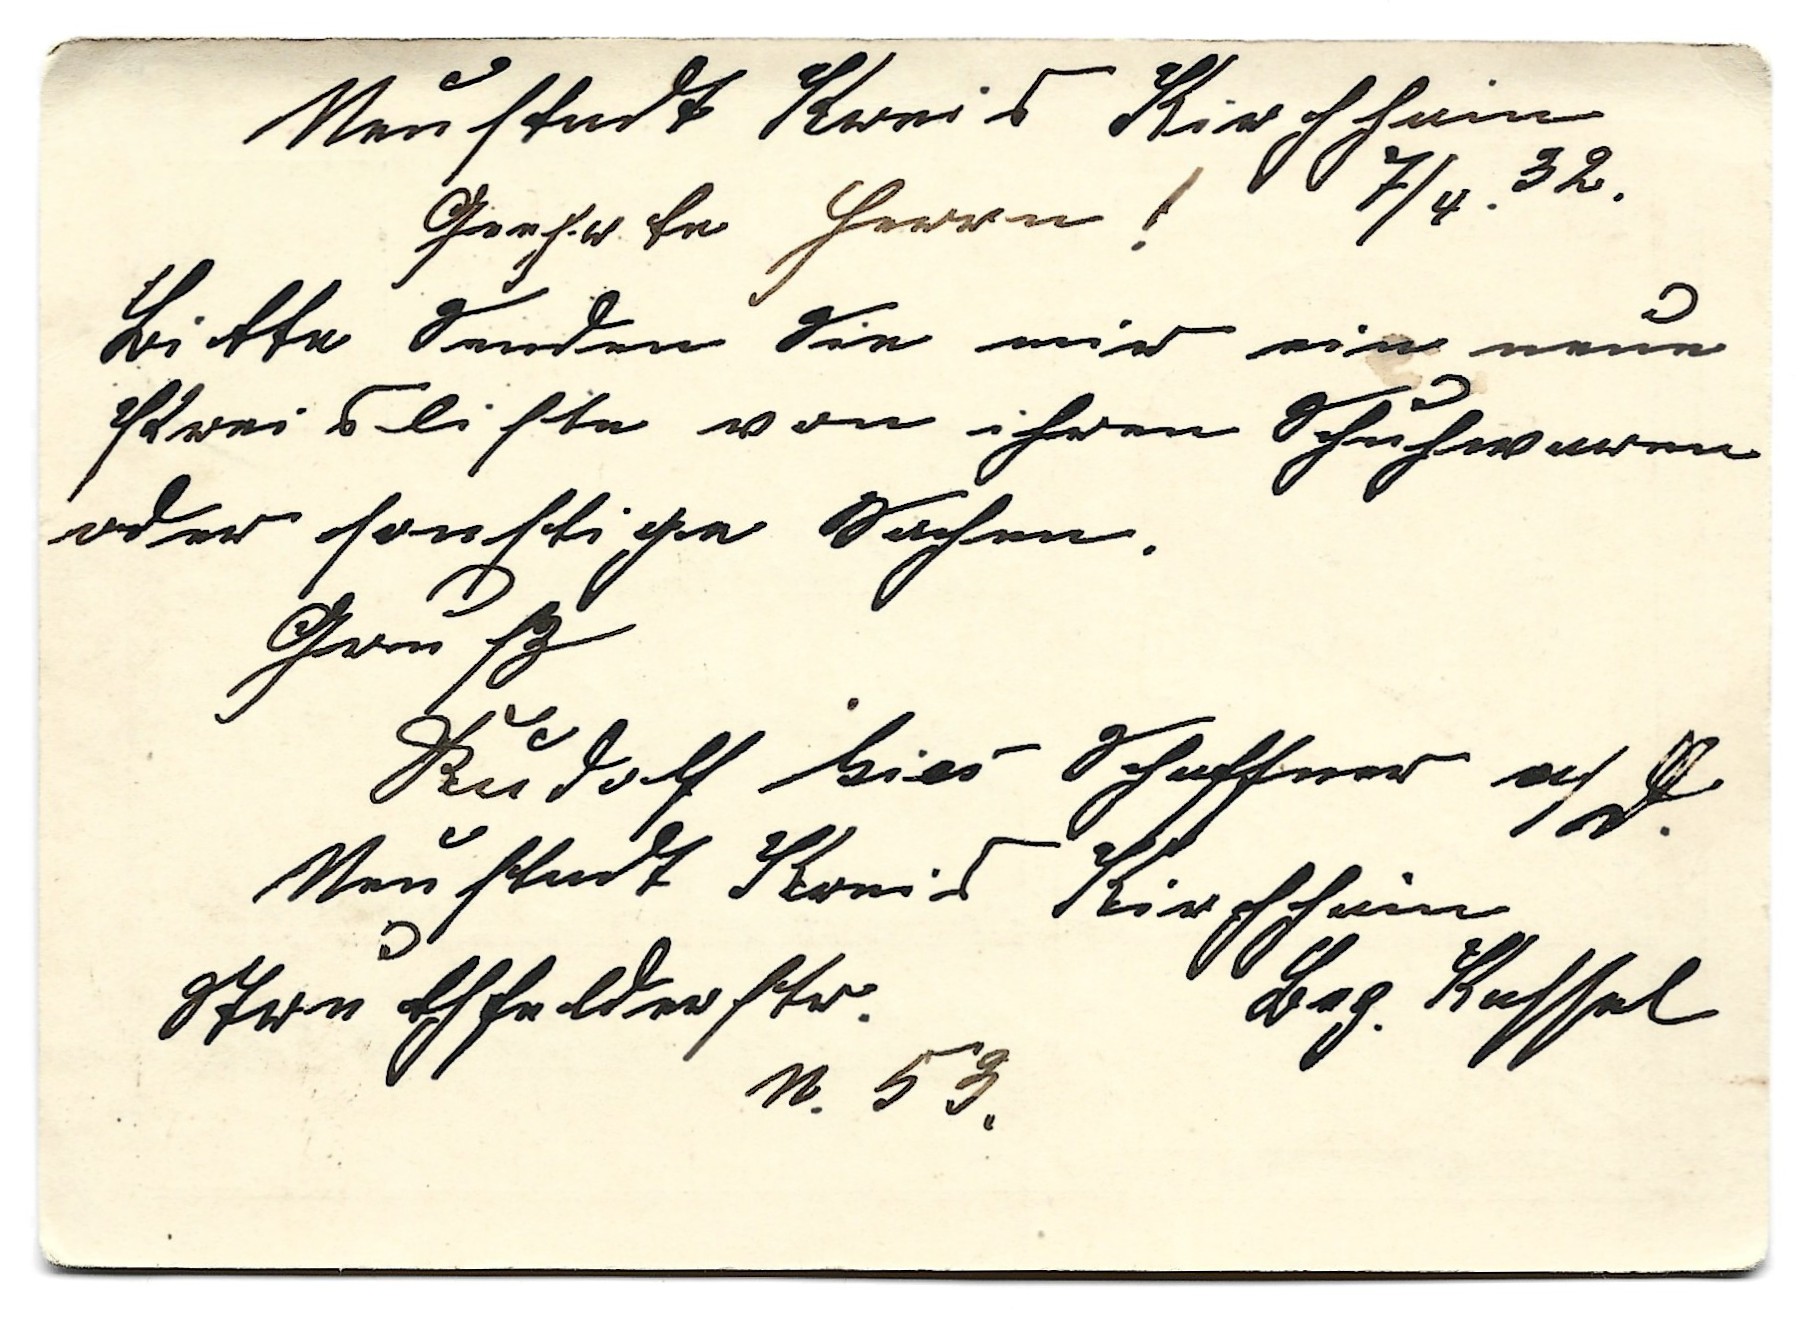 Neustadt Kreis Kirchhain
7/4. 32.
Geehrte Herrn!
Bitte Senden Sie mir ein neue
Preisliste von ihren Schuhwaren
oder sonstige Sachen.
Gruß
Rudolf Schaffner a/D.
Neustadt Kreis Kirchhain
Bez. Kassel
Struthfelderstr.
N. 53.